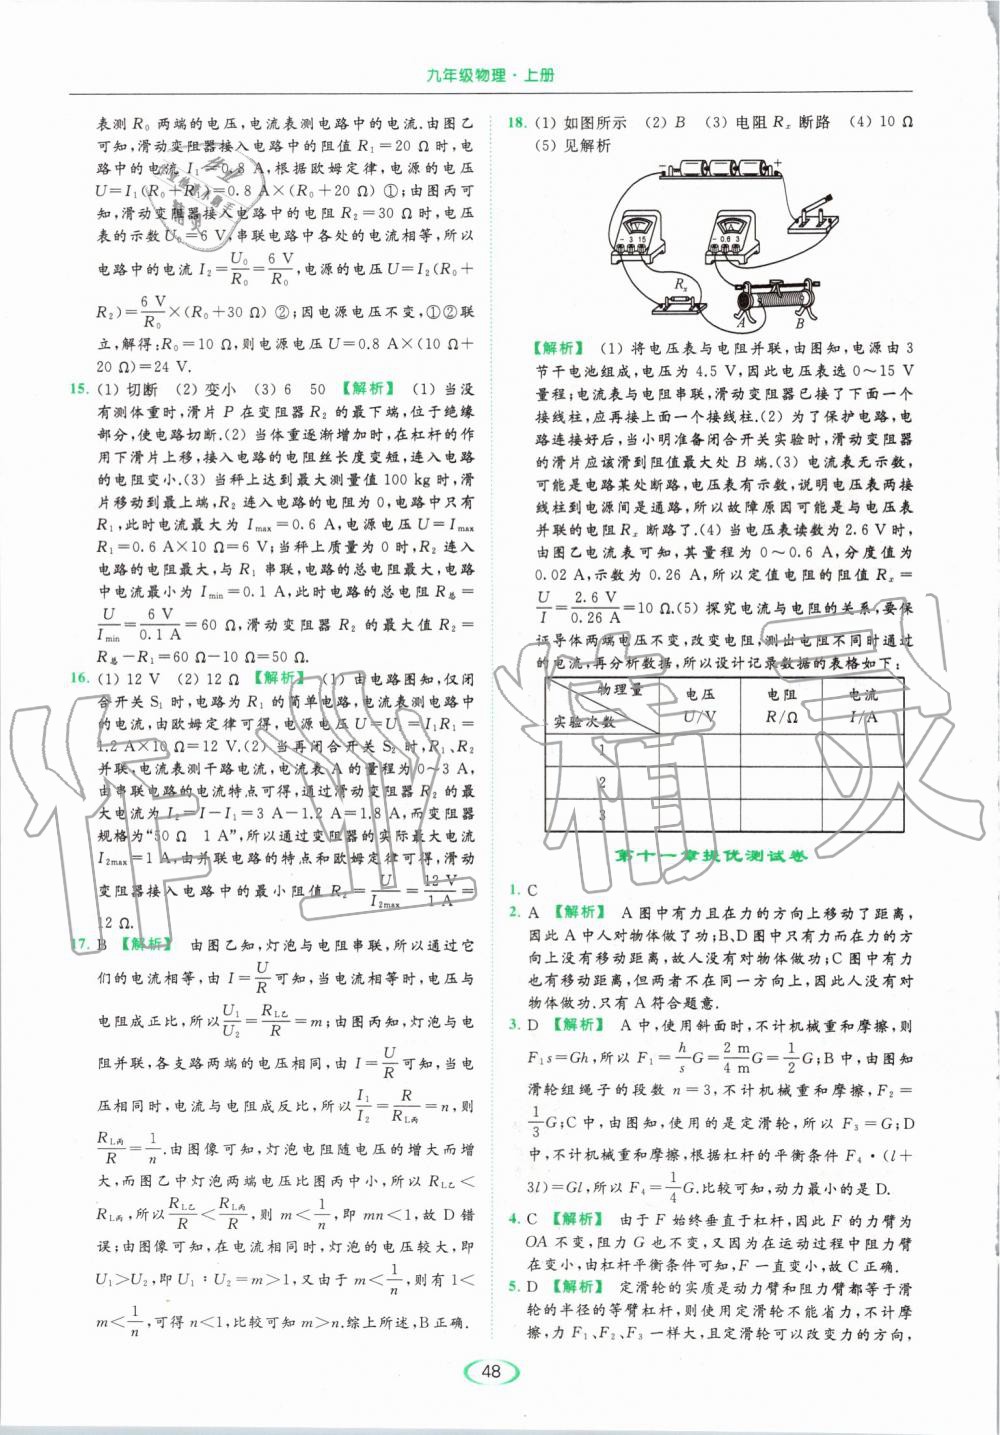 九年级物理·上册
表测 R₀ 两端的电压,电流表测电路中的电流.由图乙
可知,滑动变阻器接入电路中的阻值 R₁=20 Ω时,电
路中的电流 I₁=0.8 A,根据欧姆定律,电源的电压
U=I₁(R₀+R₁)=0.8 A×(R₀+20 Ω)①;由图丙可
知,滑动变阻器接入电路中的电阻 R₂=30 Ω时,电压
表的示数 U₀=6 V,串联电路中各处的电流相等,所以
电路中的电流 I₂=U₀/R₀=6 V/R₀,电源的电压 U=I₂(R₀+
R₂)=6 V/R₀×(R₀+30 Ω)②;因电源电压不变,①②联
立,解得:R₀=10 Ω,则电源电压 U=0.8 A×(10 Ω+
20 Ω)=24 V.
15. (1) 切断 (2) 变小 (3) 6 50 【解析】 (1) 当没
有测体重时,滑片 P 在变阻器 R₂ 的最下端,位于绝缘
部分,使电路切断.(2) 当体重逐渐增加时,在杠杆的作
用下滑片上移,接入电路的电阻丝长度变短,连入电路
的电阻变小.(3) 当秤上达到最大测量值 100 kg 时,滑
片移动到最上端,R₂ 连入电路的电阻为 0,电路中只有
R₁,此时电流最大为 Imax=0.6 A,电源电压 U=Imax
R₁=0.6 A×10 Ω=6 V;当秤上质量为 0 时,R₂ 连入
电路的电阻最大,与 R₁ 串联,电路的总电阻最大,电路
中电流最小为 Imin=0.1 A,此时电路的总电阻 R总=
U/Imin=6 V/0.1 A=60 Ω,滑动变阻器 R₂ 的最大值 R₂=
R总-R₁=60 Ω-10 Ω=50 Ω.
16. (1) 12 V (2) 12 Ω 【解析】 (1) 由电路图知,仅闭
合开关 S₁ 时,电路为 R₁ 的简单电路,电流表测电路中
的电流,由欧姆定律可得,电源电压 U=U₁=I₁R₁=
1.2 A×10 Ω=12 V.(2) 当再闭合开关 S₂ 时,R₁、R₂
并联,电流表测干路电流,电流表 A 的量程为 0~3 A,
由串联电路的电流特点可得,通过滑动变阻器 R₂ 的最
大电流为 I₂=I-I₁=3 A-1.2 A=1.8 A,而变阻器
规格为“50 Ω 1 A”,所以通过变阻器的实际最大电流
I2max=1 A,由并联电路的特点和欧姆定律可得,滑动
变阻器接入电路中的最小阻值 R₂=U/I2max=12 V/1 A=
12 Ω.
17. B 【解析】 由图乙知,灯泡与电阻串联,所以通过它
们的电流相等,由 I=U/R可知,当电流相等时,电压与
电阻成正比,所以U₁/U₂=RL乙/R=m;由图丙知,灯泡与电
阻并联,各支路两端的电压相同,由 I=U/R可知,当电
压相同时,电流与电阻成反比,所以I₁/I₂=R/RL丙=n,则
RL丙/R=1/n.由图像可知,灯泡电阻随电压的增大而增
大,而图乙中灯泡两端电压比图丙中小,所以 RL乙<
RL丙,所以RL乙/R<RL丙/R,则 m<1/n,即 mn<1,故 D 错
误;由图像可知,在电流相同时,灯泡的电压较大,即
U₁>U₂,即 U₁∶U₂=m>1,又由于 m<1/n,则有 1<
m<1/n,可得 n<1,比较可知 m>n.综上所述,B正确.
18. (1) 如图所示 (2) B (3) 电阻 Rx 断路 (4) 10 Ω
(5) 见解析
- +
V
- 3 15
A
- 0.6 3
Rx
A B
【解析】 (1) 将电压表与电阻并联,由图知,电源由 3
节干电池组成,电压为 4.5 V,因此电压表选 0~15 V
量程;电流表与电阻串联,滑动变阻器已接了下面一个
接线柱,应再接上面一个接线柱.(2) 为了保护电路,电
路连接好后,当小明准备闭合开关实验时,滑动变阻器
的滑片应该滑到阻值最大处 B 端.(3) 电流表无示数,
可能是电路某处断路,电压表有示数,说明电压表两接
线柱到电源间是通路,所以故障原因可能是与电压表
并联的电阻 Rx 断路了.(4) 当电压表读数为 2.6 V时,
由图乙电流表可知,其量程为 0~0.6 A,分度值为
0.02 A,示数为 0.26 A,所以定值电阻的阻值 Rx=
U/I=2.6 V/0.26 A=10 Ω.(5) 探究电流与电阻的关系,要保
证导体两端电压不变,改变电阻,测出电阻不同时通过
的电流,再分析数据,所以设计记录数据的表格如下:
物理量 电压 电阻 电流
实验次数 U/V R/Ω I/A
1
2
3
第十一章提优测试卷
1. C
2. A 【解析】 A 图中有力且在力的方向上移动了距离,
因此 A 中人对物体做了功;B、D 图中只有力而在力的方
向上没有移动距离,故人没有对物体做功;C 图中有力
也有移动距离,但两者不在同一方向上,因此人没有对
物体做功.只有 A 符合题意.
3. D 【解析】 A 中,使用斜面时,不计机械重和摩擦,则
F₁s=Gh,所以 F₁=h/sG=2 m/4 mG=1/2G;B 中,由图知
滑轮组绳子的段数 n=3,不计机械重和摩擦,F₂=
1/3G;C 中,使用的是定滑轮,所以 F₃=G;D
中,不计机械重和摩擦,根据杠杆的平衡条件 F₄·(l+
3l)=Gl,所以 F₄=1/4G.比较可知,动力最小的是 D.
4. C 【解析】 由于 F 始终垂直于杠杆,因此 F 的力臂为
OA 不变,阻力 G 也不变,又因为在运动过程中阻力臂
在变小,由杠杆平衡条件可知,F 一直变小,故 C 正确.
5. D 【解析】 定滑轮的实质是动力臂和阻力臂都等于滑
轮的半径的等臂杠杆,则使用定滑轮不能省力,不计摩
擦,力 F₁、F₂、F₃ 一样大,且定滑轮可以改变力的方向,
48
作业精灵